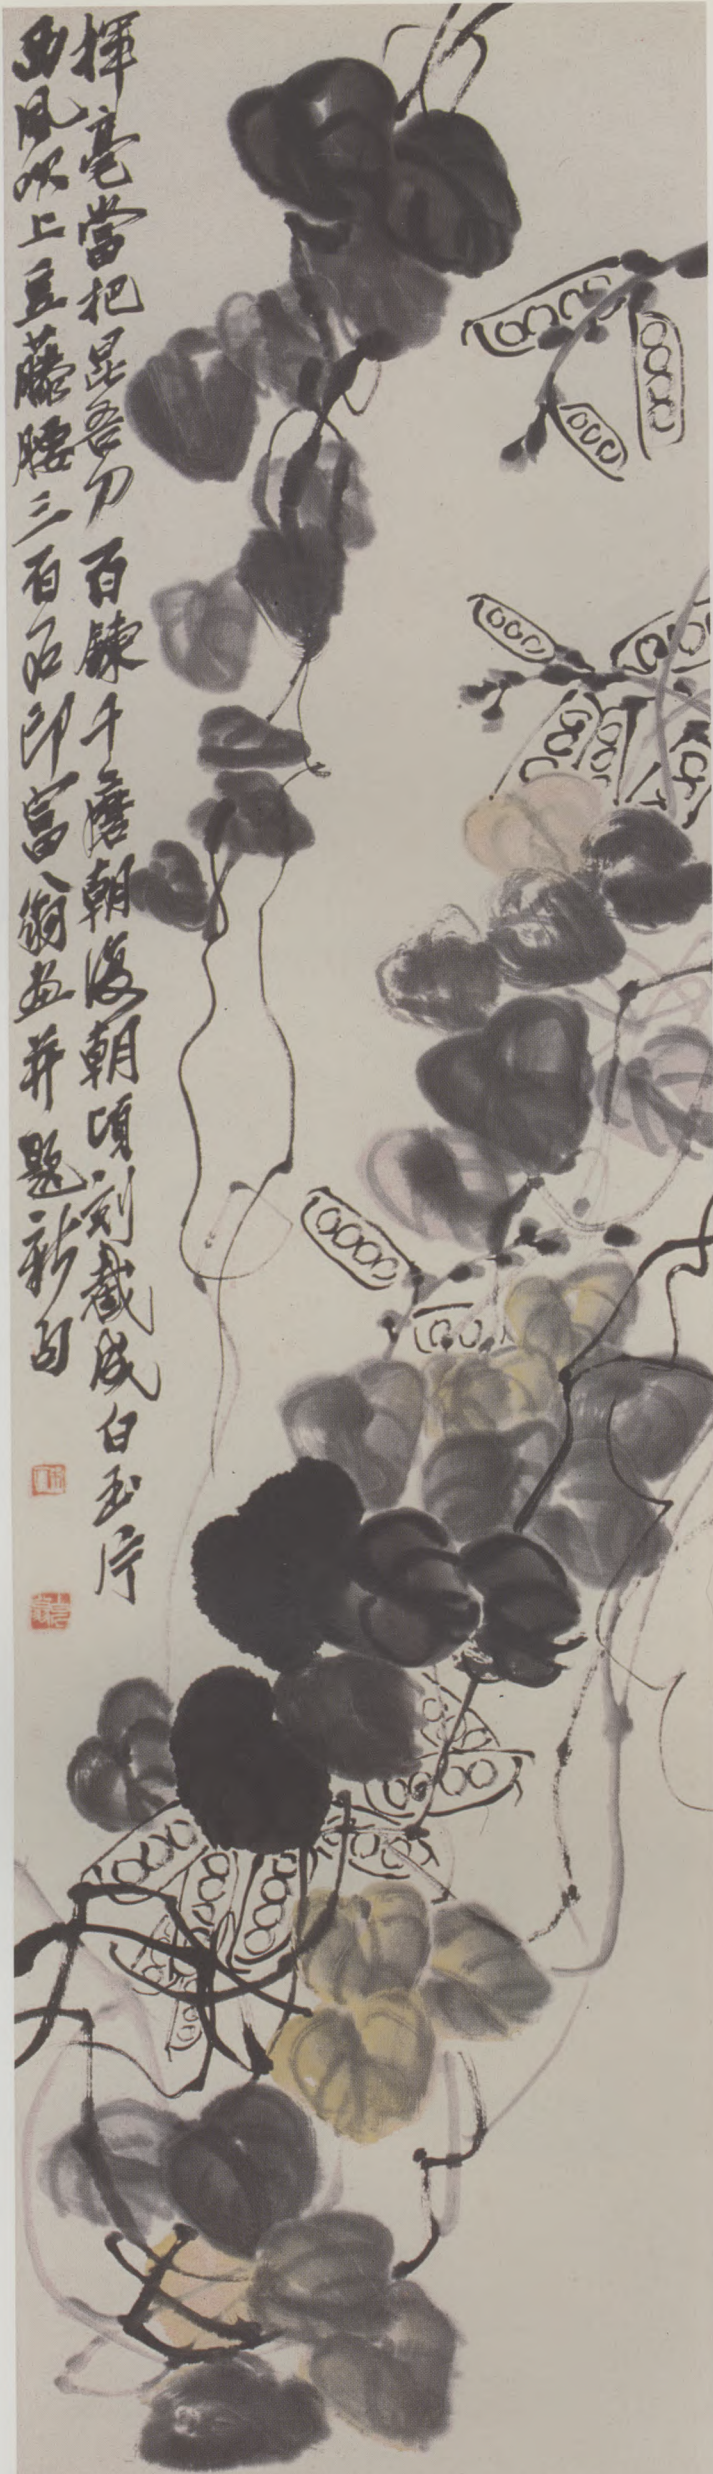 揮毫當把昆吾刀百鍊千磨朝復朝頃刻截成白玉片
西風吹上豆藤腰三百石印富翁畫並題新句